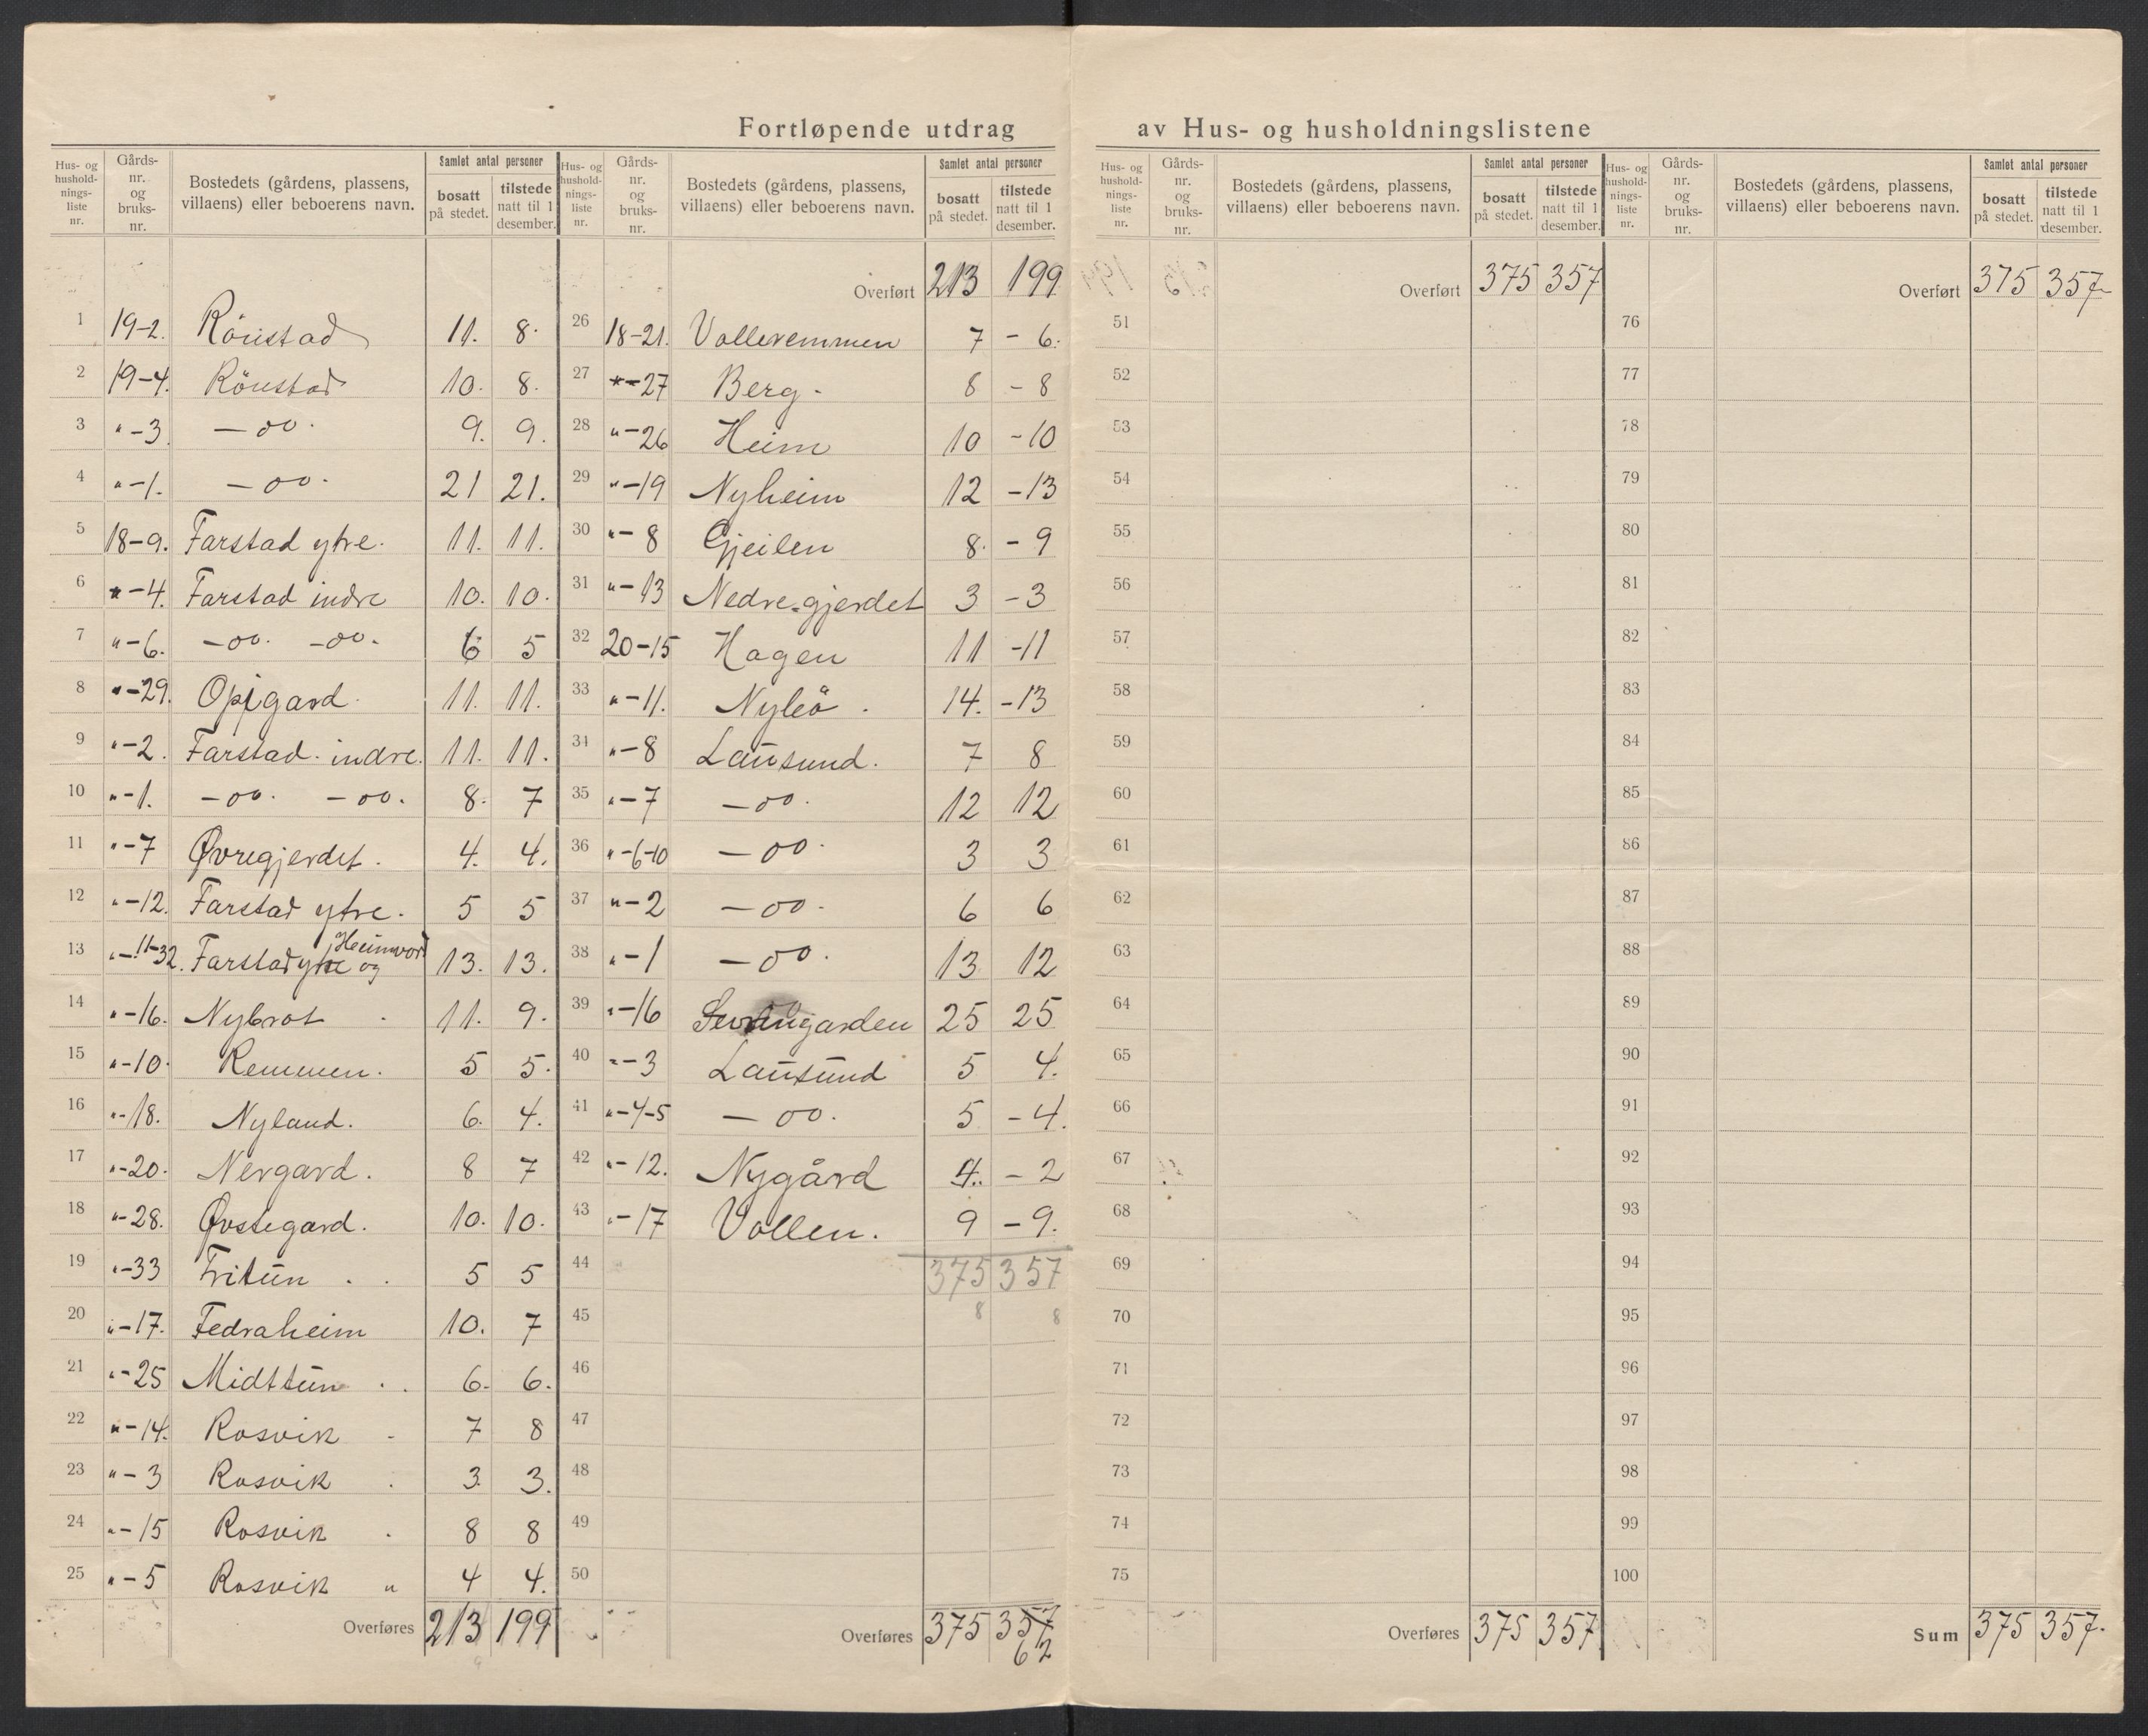 Fortløpende utdrag av Hus- og husholdningslistene
Hus- og husholdningsliste nr. | Gårds-nr. og bruks-nr. | Bostedets (gårdens, plassens, villaens) eller beboerens navn. | Samlet antal personer | bosatt på stedet. | tilstede natt til 1 desember.
1 19-2. Rönstad 11. 8.
2 19-4. Rönstad 10. 8.
3 "-3. -oo- 9. 9.
4 "-1. -oo- 21 21.
5 18-9. Farstad ytre. 11. 11.
6 "-4. Farstad indre 10. 10.
7 "-6. -oo- -oo- 6 5
8 "-29. Oppgard. 11. 11.
9 "-2. Farstad indre. 11. 11.
10 "-1. -oo- -oo- 8. 7
11 "-7 Øvregjerdet. 4. 4.
12 "-12. Farstad ytre. 5 5
13 "-11-32. Farstad ytre og Heimvoll 13. 13.
14 "-16. Nybrot 11. 9.
15 "-10. Remmen. 5 5.
16 "-18. Nyland. 6. 4.
17 "-20. Nergard. 8 7
18 "-28. Øvstegard. 10. 10.
19 "-33 Fritun 5 5
20 "-17. Fedraheim 10. 7
21 "-25 Midttun 6. 6.
22 "-14. Rosvik 7 8
23 "-3 Rosvik 3. 3.
24 "-15 Rosvik 8 8
25 "-5 Rosvik " 4 4.
Overføres 213 199
Hus- og husholdningsliste nr. | Gårds-nr. og bruks-nr. | Bostedets (gårdens, plassens, villaens) eller beboerens navn. | Samlet antal personer | bosatt på stedet. | tilstede natt til 1 desember.
Overført 213 199
26 18-21. Volleremmen 7 - 6.
27 "-27 Berg. 8 - 8
28 "-26 Heim 10 -10
29 "-19 Nyheim 12 -13
30 "-8 Gjeilen 8. - 9
31 "-13 Nedre-gjerdet 3 -3
32 20-15 Hagen 11 -11
33 "-11. Nyleö. 14. -13
34 "-8 Lausund. 7 8
35 "-7 -oo- 12 12
36 "-6-10 -oo- 3 3
37 "-2 -oo- 6 6
38 "-1 -oo- 13 12
39 "-16 25 25
40 "-3 Lausund 5 4.
41 "-4-5 -oo- 5 -4.
42 "-12. Nygård 4. - 2
43 "-17 Vollen. 9 -9.
44 375 357
45 8 8
46
47
48
49
50
Overføres 375 357
62
Hus- og husholdningsliste nr. | Gårds-nr. og bruks-nr. | Bostedets (gårdens, plassens, villaens) eller beboerens navn. | Samlet antal personer | bosatt på stedet. | tilstede natt til 1 desember.
Overført 375 357
51
52
53
54
55
56
57
58
59
60
61
62
63
64
65
66
67
68
69
70
71
72
73
74
75
Overføres 375 357
Hus- og husholdningsliste nr. | Gårds-nr. og bruks-nr. | Bostedets (gårdens, plassens, villaens) eller beboerens navn. | Samlet antal personer | bosatt på stedet. | tilstede natt til 1 desember.
Overført 375 357
76
77
78
79
80
81
82
83
84
85
86
87
88
89
90
91
92
93
94
95
96
97
98
99
100
Sum 375 357.